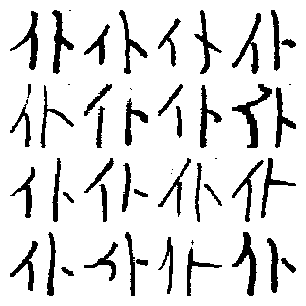 仆仆仆仆
仆仆仆仆
仆仆仆仆
仆仆仆仆